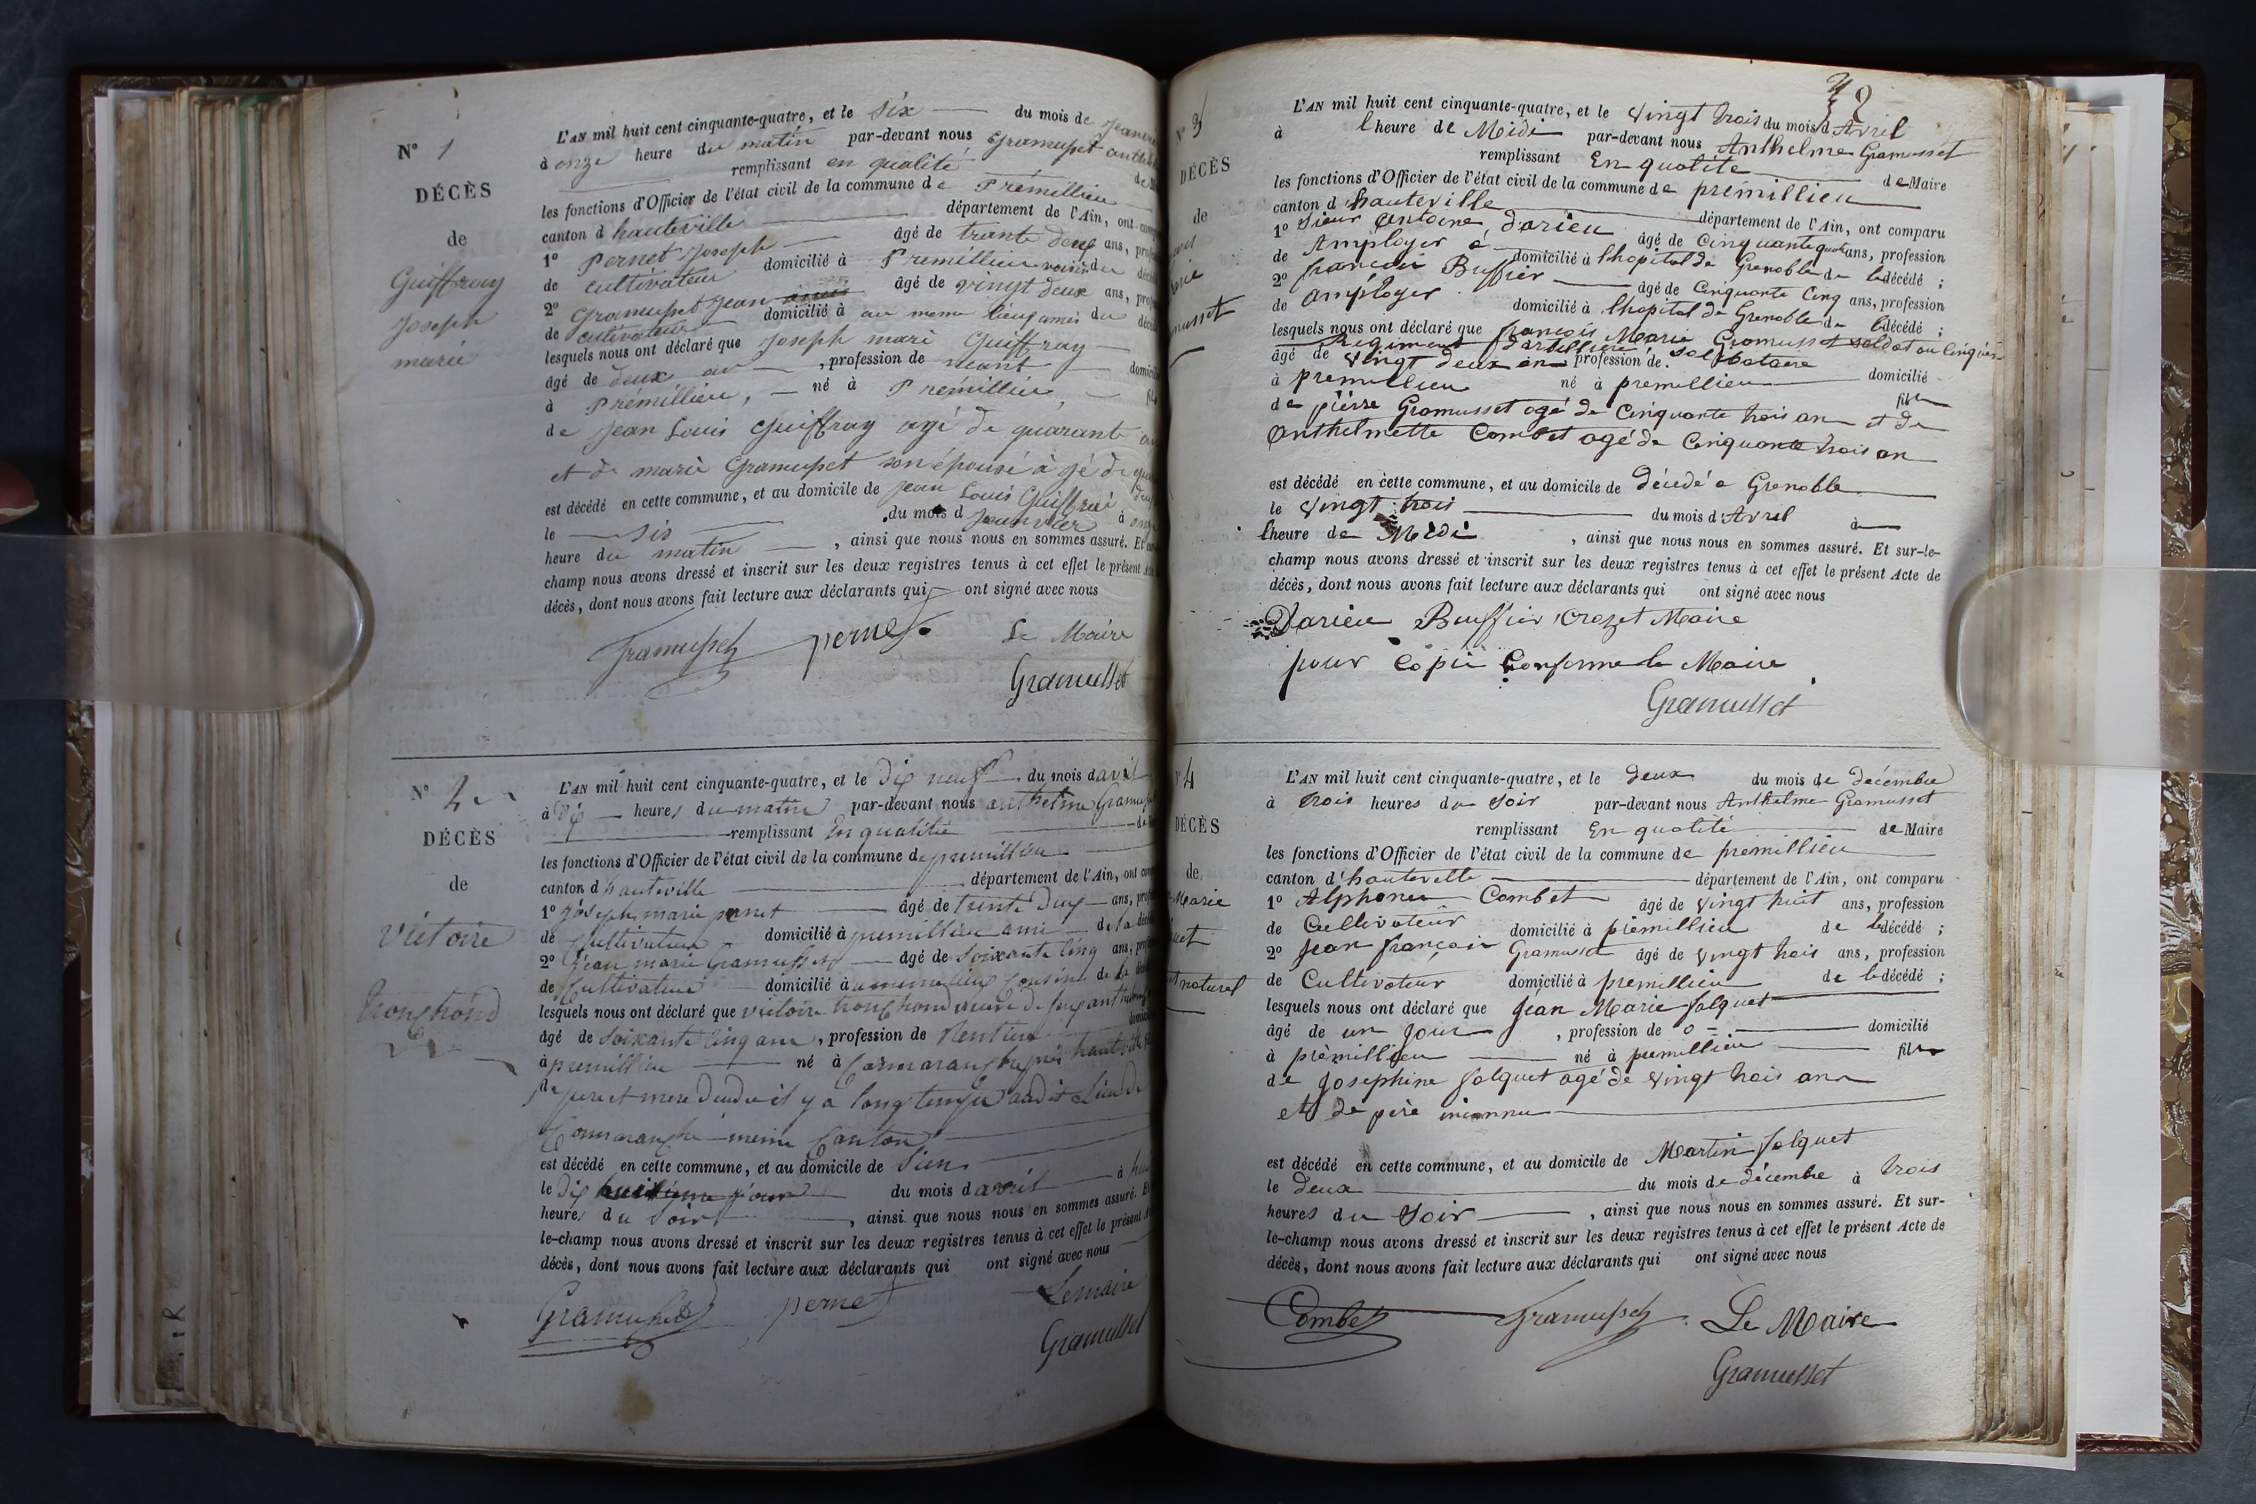 N° 1
DÉCÈS
de
Guiffray
Joseph
marié
L'AN mil huit cent cinquante-quatre, et le six du mois de
à onze heure du matin par-devant nous Gramusset
remplissant en qualité
les fonctions d'Officier de l'état civil de la commune de Prémillieu
canton d hauteville département de l'Ain, ont
1° Pernet Joseph âgé de trante deux ans,
de cultivateur domicilié à Premillieu voisin du
2° Gramusset Jean âgé de vingt deux ans,
de cultivateur domicilié à au meme lieu amis du
lesquels nous ont déclaré que Joseph marié Guiffray
âgé de deux an , profession de néant
à Prémillieu, né à Prémillieu,
de Jean Louis Guiffray agé de quarant
et de marie Gramusset son épouse à gé de
est décédé en cette commune, et au domicile de Jean Louis Guiffrai
le sis du mois d Janvier à
heure du matin , ainsi que nous nous en sommes assuré. Et
champ nous avons dressé et inscrit sur les deux registres tenus à cet effet le présent
décès, dont nous avons fait lecture aux déclarants qui ont signé avec nous
Gramusset pernet Le Maire
Gramusset
N° 2
DÉCÈS
de
Victoire
L'AN mil huit cent cinquante-quatre, et le dix neuf du mois d avril
à dix heures du matin par-devant nous anthelme
remplissant En qualitée
les fonctions d'Officier de l'état civil de la commune de premillieu
canton d hauteville département de l'Ain, ont
1° Joseph marie pernet âgé de trente Deux ans,
de Cultivateur domicilié à premillieu ami de la
2° Jean marie Gramusset âgé de Soixante Cinq ans,
de Cultivateur domicilié à au meme lieu Cousin de la
lesquels nous ont déclaré que victoire
âgé de Soixante Cinq ans, profession de Rentière
à premillieu né à
de père et mere Décédé il y a long temps
meme Canton
est décédé en cette commune, et au domicile de Sien
le dix huitieme jour du mois d avril à
heures du Soir , ainsi que nous nous en sommes assuré. Et
le-champ nous avons dressé et inscrit sur les deux registres tenus à cet effet le présent
décès, dont nous avons fait lecture aux déclarants qui ont signé avec nous
Gramusset pernet Lemaire
Gramusset
N° 3
DÉCÈS
de
L'AN mil huit cent cinquante-quatre, et le vingt trois du mois d Avril
à l heure de Midi par-devant nous Anthelme Gramusset
remplissant En qualité de Maire
les fonctions d'Officier de l'état civil de la commune de premillieu
canton d hauteville département de l'Ain, ont comparu
1° Sieur Antoine Darieu âgé de Cinquante quatre ans, profession
de Employer a domicilié à lhopital de Grenoble de le décédé ;
2° françois Buffier âgé de Cinquante Cinq ans, profession
de amployer domicilié à lhopital de Grenoble de le décédé ;
lesquels nous ont déclaré que françois Marie Gramusset soldat au Cinquieme
Regiment dartillerie
âgé de vingt deux an profession de Selibataire
à premillieu né à premillieu domicilié
fils
de pièrre Gramusset agé de Cinquante trois an et de
Anthelmette Combet agé de Cinquante trois an
est décédé en cette commune, et au domicile de décédé a Grenoble
le vingt trois du mois d Avril à
l heure de Midi , ainsi que nous nous en sommes assuré. Et sur-le-
champ nous avons dressé et inscrit sur les deux registres tenus à cet effet le présent Acte de
décès, dont nous avons fait lecture aux déclarants qui ont signé avec nous
Darieu Buffier Crozet Maire
pour Copie Conforme le Maire
Gramusset
4
DÉCÈS
de
Marie
naturel
L'AN mil huit cent cinquante-quatre, et le deux du mois de décembre
à trois heures du Soir par-devant nous Anthelme Gramusset
remplissant En qualité de Maire
les fonctions d'Officier de l'état civil de la commune de premillieu
canton d'hauteville département de l'Ain, ont comparu
1° Alphonse Combet âgé de vingt huit ans, profession
de Cultivateur domicilié à prémillieu de le décédé ;
2° Jean françois Gramusset âgé de vingt trois ans, profession
de Cultivateur domicilié à premillieu de le décédé ;
lesquels nous ont déclaré que Jean Marie Jolquet
âgé de un Jour , profession de 0 domicilié
à prémillieu né à premillieu fils
de Josephine Jolquet agé de vingt trois ans
et de père inconnu
est décédé en cette commune, et au domicile de Martin Jolquet
le deux du mois de décembre à trois
heures du Soir , ainsi que nous nous en sommes assuré. Et sur-
le-champ nous avons dressé et inscrit sur les deux registres tenus à cet effet le présent Acte de
décès, dont nous avons fait lecture aux déclarants qui ont signé avec nous
Combet Gramusset Le Maire
Gramusset